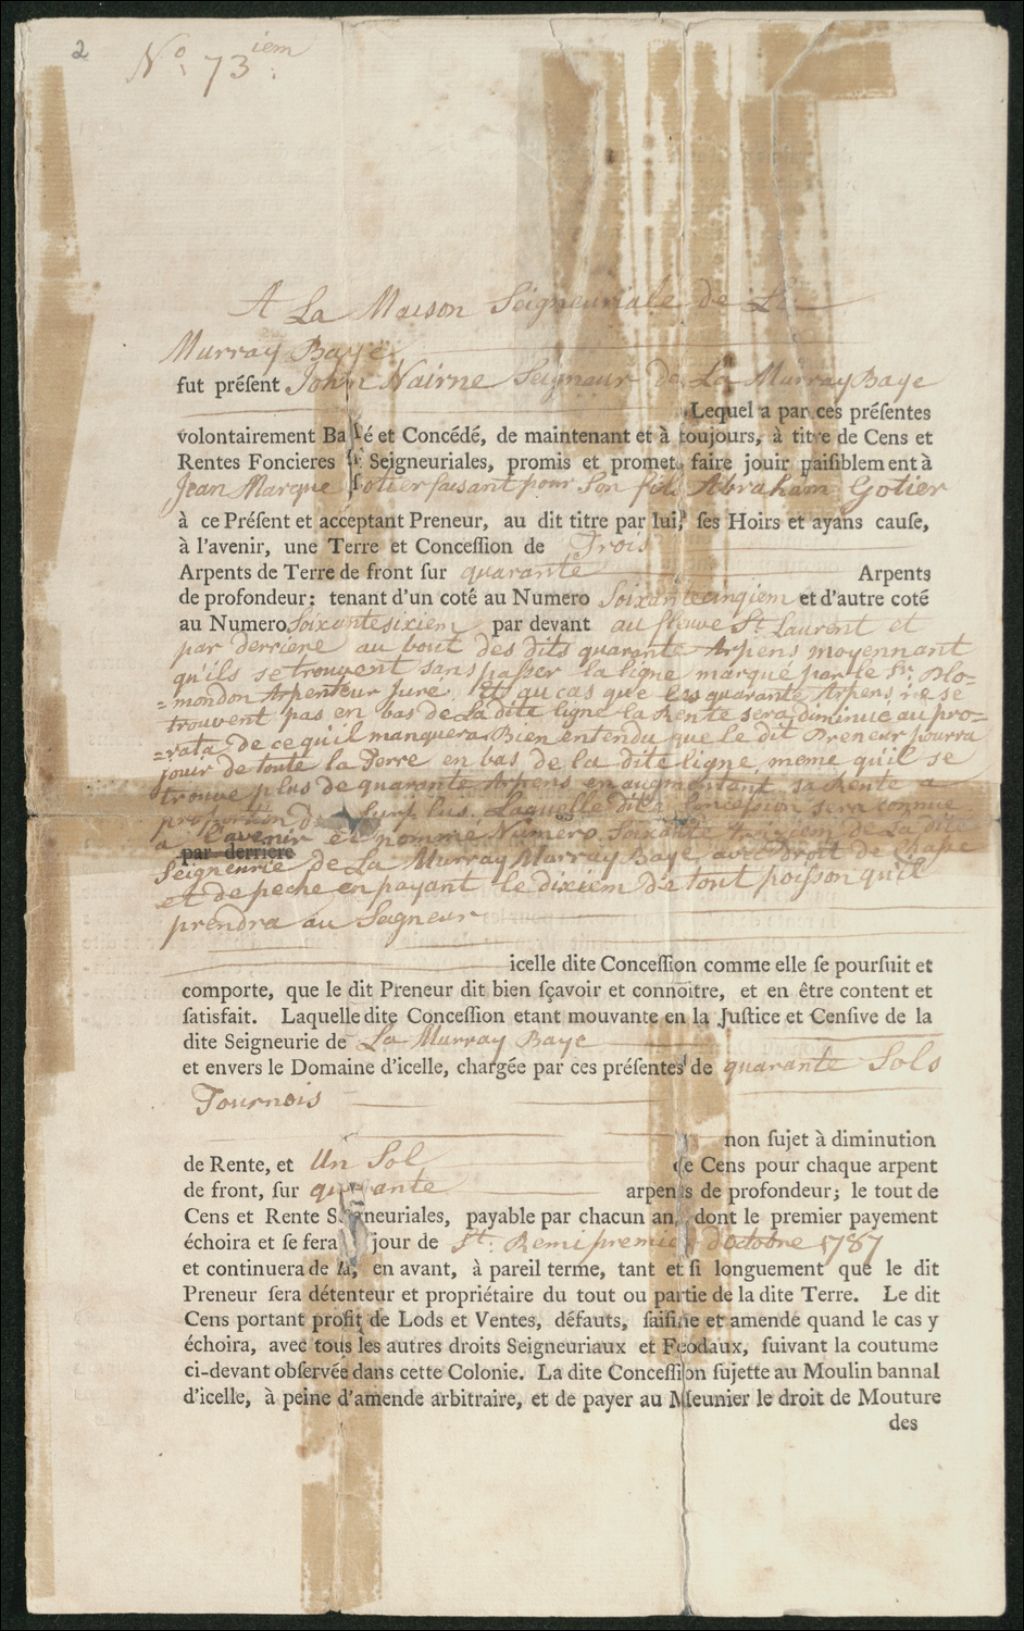 2
No. 73iem:
A La Maison Seigneuriale de La
Murray Baye
fut préſent John Nairne Seigneur de La Murray Baye
Lequel a par ces préſentes
volontairement Ba é et Concédé, de maintenant et à toujours, à titre de Cens et
Rentes Foncieres Seigneuriales, promis et promet, faire jouir paiſiblement à
Jean Marque Gotier faisant pour Son fils Abraham Gotier
à ce Préſent et acceptant Preneur, au dit titre par lui, ſes Hoirs et ayans cauſe,
à l'avenir, une Terre et Conceſſion de Trois
Arpents de Terre de front ſur quarante Arpents
de profondeur: tenant d'un coté au Numero Soixantecinqiem et d'autre coté
au Numero Soixantesixiem par devant au fleuve St. Laurent et
par derriere au bout des dits quarante Arpens moyennant
qu'ils se trouvent sans paſser la ligne marqué par le Sr. Plo-
=mondon Arpenteur Juré. Et au cas que les quarante Arpens ne se
trouvent pas en bas de La dite ligne la Rente sera diminué au pro=
=rata de ce qu'il manquera. Bien entendu que le dit Preneur pourra
jouir de toute la Terre en bas de la dite ligne, meme qu'il se
trouve plus de quarante Arpens en augmentant sa Rente a
proportion du Surplus. Laquelle dite Conceſsion sera connue
a l'avenir et nommé Numero Soixante treiziem de La dite
par derriere
Seigneurie de La Murray Murray Baye avec droit de chaſse
et de peche en payant le dixiem de tout poiſson qu'il
prendra au Seigneur
icelle dite Conceſſion comme elle ſe pourſuit et
comporte, que le dit Preneur dit bien ſçavoir et connoitre, et en être content et
ſatisfait. Laquelle dite Conceſſion etant mouvante en la Juſtice et Cenſive de la
dite Seigneurie de La Murray Baye
et envers le Domaine d'icelle, chargée par ces préſentes de quarante Sols
Tournois
non ſujet à diminution
de Rente, et Un Sol de Cens pour chaque arpent
de front, ſur quarante arpents de profondeur; le tout de
Cens et Rente Seigneuriales, payable par chacun an, dont le premier payement
échoira et ſe fera jour de St. Remi premier d'octobre 1787
et continuera de là, en avant, à pareil terme, tant et ſi longuement que le dit
Preneur ſera détenteur et propriétaire du tout ou partie de la dite Terre. Le dit
Cens portant profit de Lods et Ventes, défauts, ſaiſine et amende quand le cas y
échoira, avec tous les autres droits Seigneuriaux et Feodaux, ſuivant la coutume
ci-devant obſervée dans cette Colonie. La dite Conceſſion ſujette au Moulin bannal
d'icelle, à peine d'amende arbitraire, et de payer au Meunier le droit de Mouture
des